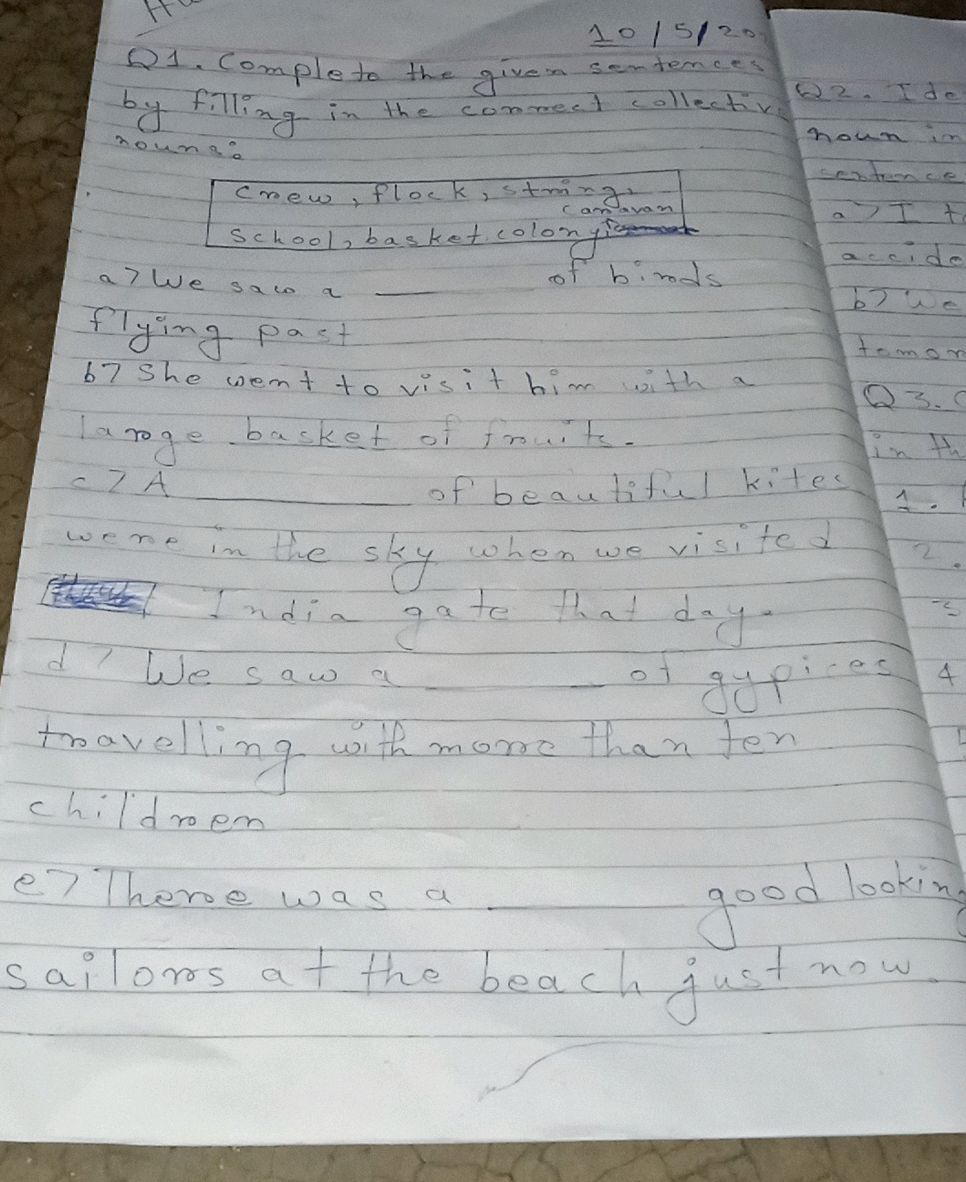 10/5/20
Q1. Complete the given sentences
by filling in the correct collectiv
nouns:
crew, flock, string,
caravan
school, basket, colony,
a) We saw a ______ of birds
flying past
b) She went to visit him with a
large basket of fruits.
c) A ______ of beautiful kites
were in the sky when we visited
India gate that day.
d) We saw a ______ of gypices
travelling with more than ten
children
e) There was a ______ good looking
sailors at the beach just now.
Q2. Ide
noun in
sentence
a) I t
accide
b) We
tomor
Q3. C
in th
1.
2.
3
4